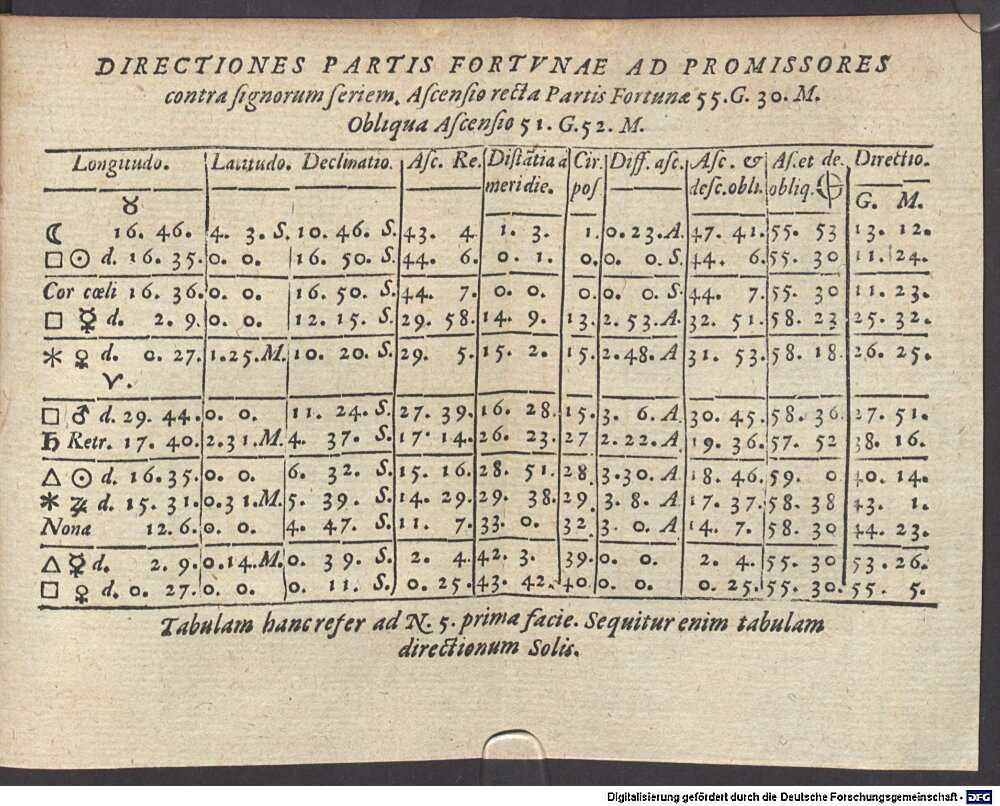 DIRECTIONES PARTIS FORTVNAE AD PROMISSORES
contra ſignorum ſeriem. Aſcenſio recta Partis Fortunæ 55. G. 30. M.
Obliqua Aſcenſio 51. G. 52. M.
Longitudo. Latitudo. Declinatio. Aſc. Re. Diſtãtia à Cir. Diff. aſc. Aſc. & Aſ. et de. Directio.
meridie. poſ deſc. obli. obliq. 🜨 G. M.
♉
☾ 16. 46. 4. 3. S. 10. 46. S. 43. 4 1. 3. 1. 0. 23. A. 47. 41. 55. 53 13. 12.
□ ☉ d. 16. 35. 0. 0. 16. 50. S. 44. 6. 0. 1. 0. 0. 0. S. 44. 6. 55. 30 11. 24.
Cor cœli 16. 36. 0. 0. 16. 50. S. 44. 7. 0. 0. 0. 0. 0. S. 44. 7. 55. 30 11. 23.
□ ☿ d. 2. 9. 0. 0. 12. 15. S. 29. 58. 14. 9. 13. 2. 53. A. 32. 51. 58. 23 25. 32.
⚹ ♀ d. 0. 27. 1. 25. M. 10. 20. S. 29. 5. 15. 2. 15. 2. 48. A 31. 53. 58. 18. 26. 25.
♈.
□ ♂ d. 29. 44. 0. 0. 11. 24. S. 27. 39. 16. 28. 15. 3. 6. A. 30. 45. 58. 36. 27. 51.
♄ Retr. 17. 40. 2. 31. M. 4. 37. S. 17. 14. 26. 23. 27 2. 22. A. 19. 36. 57. 52 38. 16.
△ ☉ d. 16. 35. 0. 0. 6. 32. S. 15. 16. 28. 51. 28 3. 30. A 18. 46. 59. 0 40. 14.
⚹ ♃ d. 15. 31. 0. 31. M. 5. 39. S. 14. 29. 29. 38. 29. 3. 8. A 17. 37. 58. 38 43. 1.
Nona 12. 6. 0. 0. 4. 47. S. 11. 7. 33. 0. 32 3. 0. A 14. 7. 58. 30 44. 23.
△ ☿ d. 2. 9. 0. 14. M. 0. 39. S. 2. 4. 42. 3. 39. 0. 0. 2. 4. 55. 30 53. 26.
□ ♀ d. 0. 27. 0. 0. 0. 11. S. 0. 25. 43. 42. 40. 0. 0. 0. 25. 55. 30. 55. 5.
Tabulam hanc refer ad N. 5. prima facie. Sequitur enim tabulam
directionum Solis.
Digitalisierung gefördert durch die Deutsche Forschungsgemeinschaft - DFG